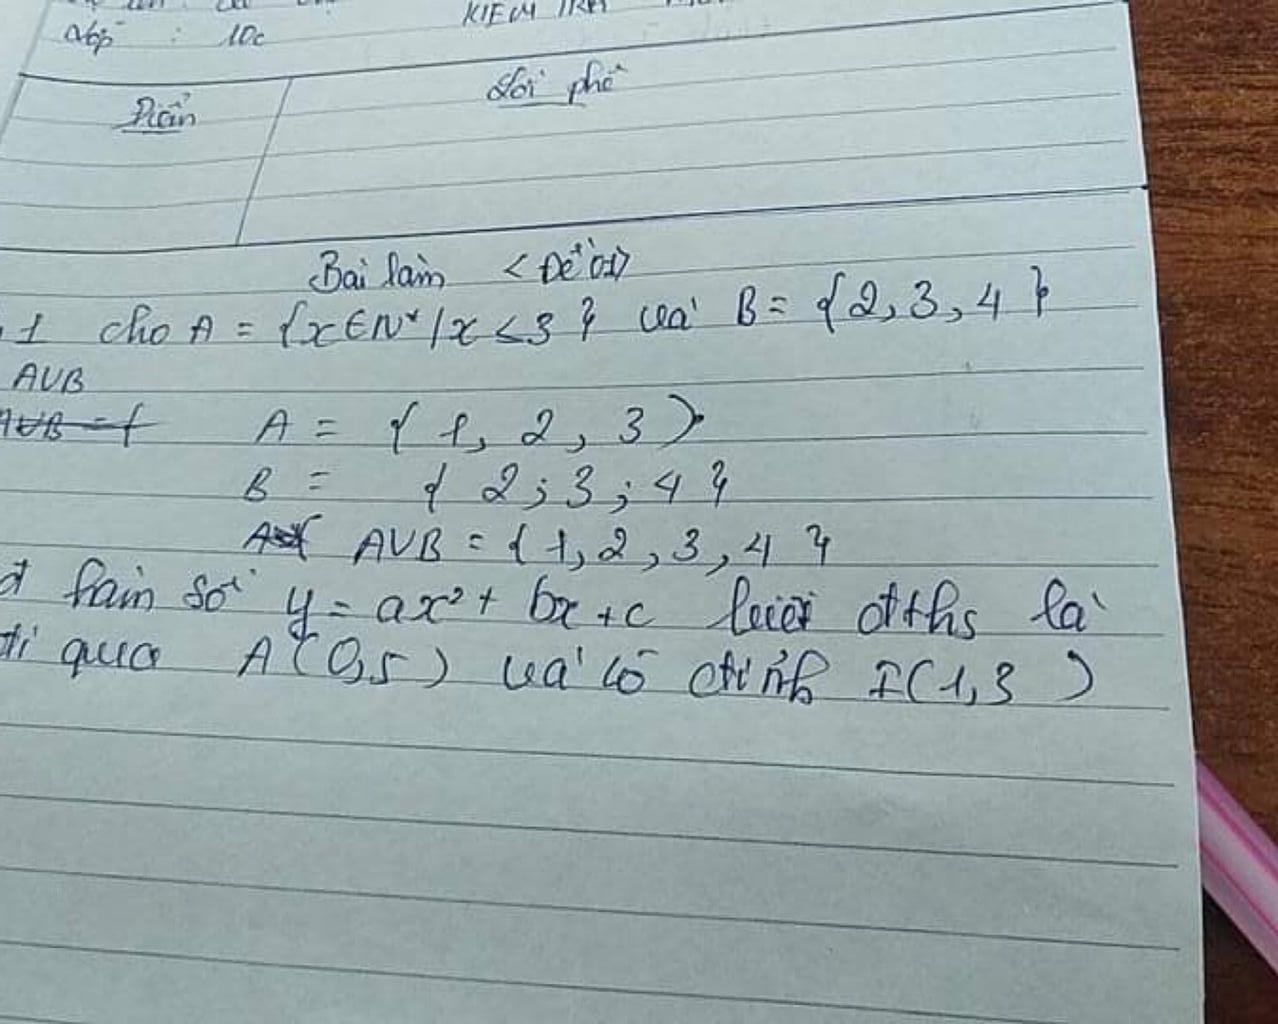 Lớp : 10c
KIEM TRA
Điểm
Lời phê
Bài làm <Đề 01>
1 cho A = {x∈N*/x<3} và B = {2,3,4}
AUB
AUB = { A = {1, 2, 3}
B = {2;3;4}
AUB = {1,2,3,4}
hàm số y = ax²+ bx+c biết đths là
đi qua A(0,5) và có đỉnh I(1,3)